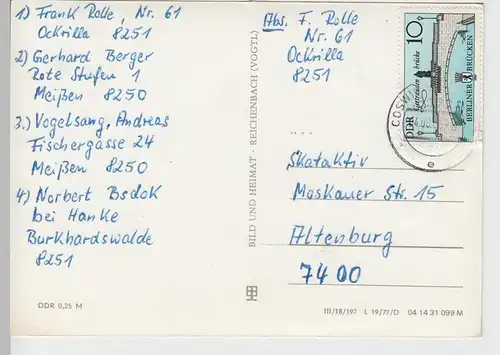 1) Frank Rolle, Nr. 61
Ockrilla 8251
2) Gerhard Berger
Rote Stufen 1
Meißen 8250
3.) Vogelsang, Andreas
Fischergasse 24
Meißen 8250
4) Norbert Bsdok
bei Hanke
Burkhardswalde
8251
DDR 0,25 M
BILD UND HEIMAT · REICHENBACH (VOGTL)
Abs. F. Rolle
Nr. 61
Ockrilla
8251
10
DDR
BERLINER BRÜCKEN
COSW
e
Skataktiv
Moskauer Str. 15
Altenburg
7400
III/18/197 L 19/77/D 04 14 31 099 M